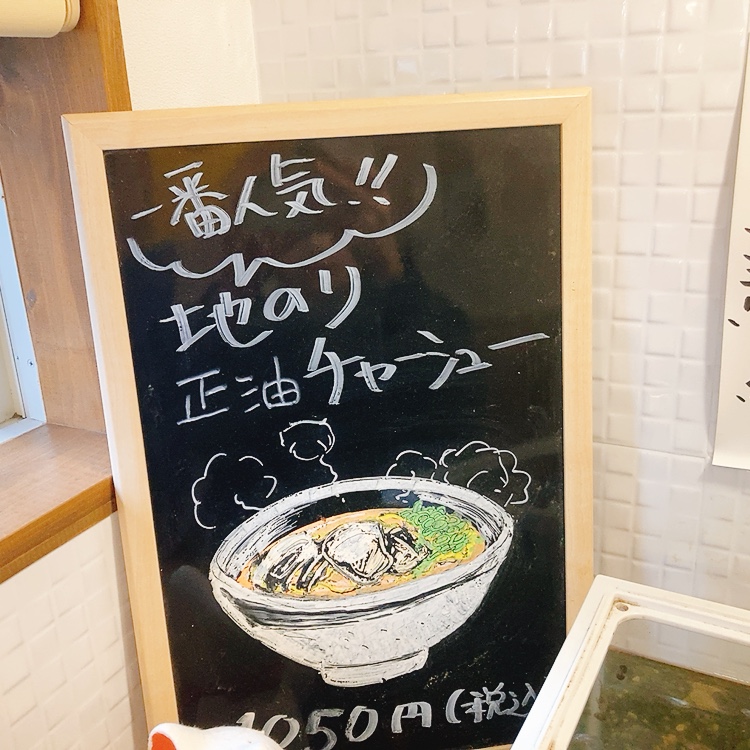 一番人気!!
地のり
正油チャーシュー
1050円(税込